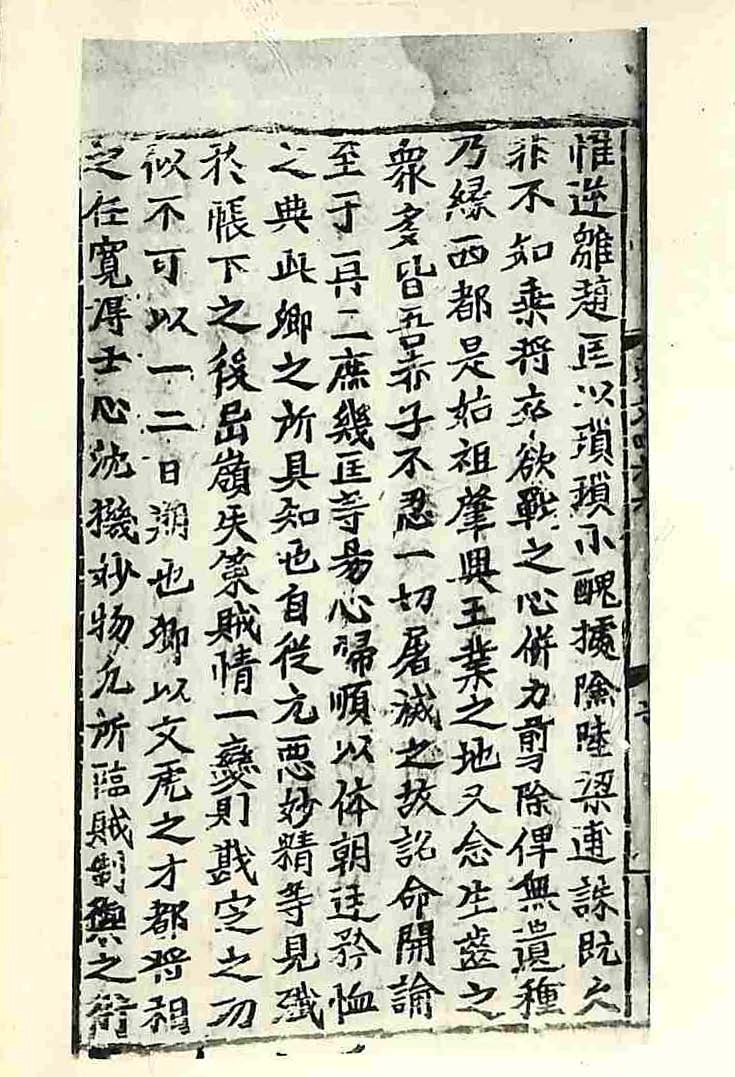 惟逆雛趙匡以瑣瑣小醜據險陸梁逋誅旣久
非不知乘將卒欲戰之心併力剪除俾無遺種
乃緣西都是始祖肇興王業之地又念生齒之
衆多皆吾赤子不忍一切屠滅之故詔命開諭
至于再二庶幾匡等易心歸順以体朝廷矜恤
之典此卿之所具知也自從元惡妙精等見殲
於帳下之後嵒嶺失策賊情一變則戡定之功
似不可以一二日朔也卿以文虎之才都將相
之任寬得士心沈機妙物凡所臨賊制之術